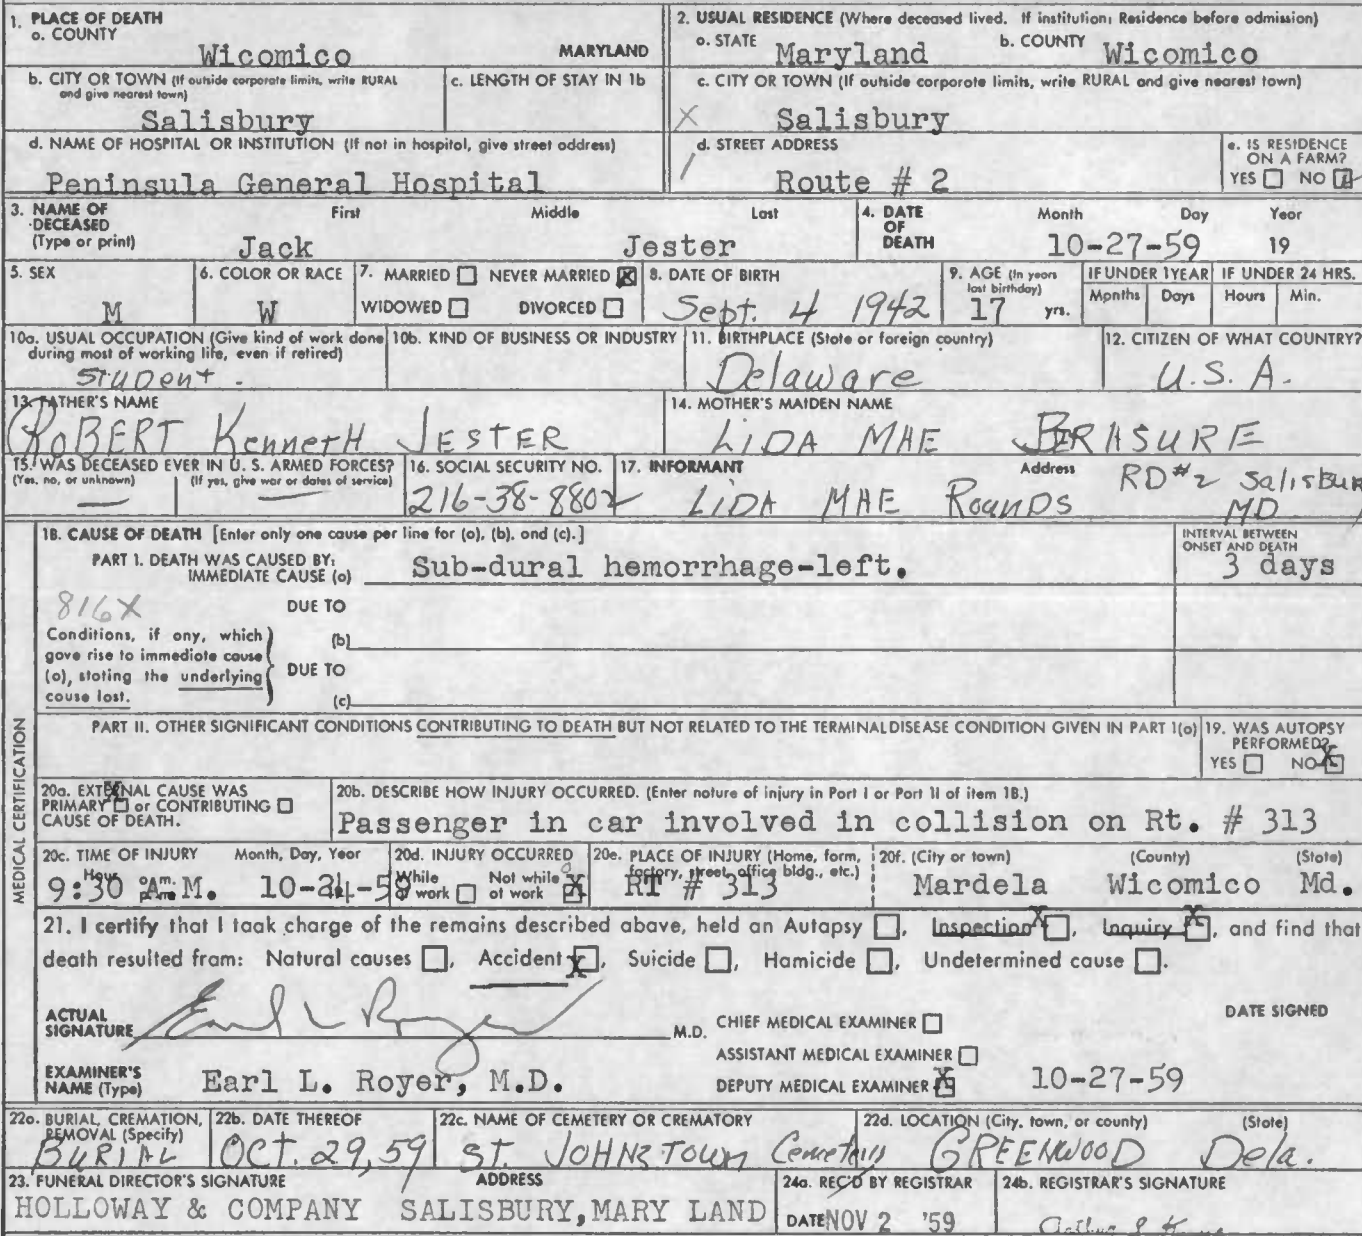 1. PLACE OF DEATH
a. COUNTY
Wicomico MARYLAND
2. USUAL RESIDENCE (Where deceased lived. If institution: Residence before admission)
a. STATE Maryland b. COUNTY Wicomico
b. CITY OR TOWN (If outside corporate limits, write RURAL and give nearest town)
Salisbury
c. LENGTH OF STAY IN 1b
c. CITY OR TOWN (If outside corporate limits, write RURAL and give nearest town)
X Salisbury
d. NAME OF HOSPITAL OR INSTITUTION (If not in hospital, give street address)
Peninsula General Hospital
d. STREET ADDRESS
Route # 2
e. IS RESIDENCE ON A FARM?
YES NO
3. NAME OF DECEASED (Type or print)
First Middle Last
Jack Jester
4. DATE OF DEATH
Month Day Year
10-27-59 19
5. SEX
M
6. COLOR OR RACE
W
7. MARRIED NEVER MARRIED X
WIDOWED DIVORCED
8. DATE OF BIRTH
Sept. 4 1942
9. AGE (In years last birthday)
17 yrs.
IF UNDER 1 YEAR
Months Days
IF UNDER 24 HRS.
Hours Min.
10a. USUAL OCCUPATION (Give kind of work done during most of working life, even if retired)
Student.
10b. KIND OF BUSINESS OR INDUSTRY
11. BIRTHPLACE (State or foreign country)
Delaware
12. CITIZEN OF WHAT COUNTRY?
U.S.A.
13. FATHER'S NAME
ROBERT KennetH JESTER
14. MOTHER'S MAIDEN NAME
LiDA MAE BRASURE
15. WAS DECEASED EVER IN U. S. ARMED FORCES?
(Yes, no, or unknown) (If yes, give war or dates of service)
16. SOCIAL SECURITY NO.
216-38-8802
17. INFORMANT Address
LiDA MAE RounDS RD#2 Salisbury
MD
18. CAUSE OF DEATH [Enter only one cause per line for (a), (b), and (c).]
INTERVAL BETWEEN ONSET AND DEATH
PART I. DEATH WAS CAUSED BY:
IMMEDIATE CAUSE (a) Sub-dural hemorrhage-left. 3 days
816X
DUE TO
Conditions, if any, which gave rise to immediate cause (a), stating the underlying cause last.
(b)
DUE TO
(c)
MEDICAL CERTIFICATION
PART II. OTHER SIGNIFICANT CONDITIONS CONTRIBUTING TO DEATH BUT NOT RELATED TO THE TERMINAL DISEASE CONDITION GIVEN IN PART I(a)
19. WAS AUTOPSY PERFORMED?
YES NO X
20a. EXTERNAL CAUSE WAS PRIMARY X or CONTRIBUTING CAUSE OF DEATH.
20b. DESCRIBE HOW INJURY OCCURRED. (Enter nature of injury in Part I or Part II of item 18.)
Passenger in car involved in collision on Rt. # 313
20c. TIME OF INJURY Month, Day, Year
Hour a.m. p.m.
9:30 A.M. 10-24-59
20d. INJURY OCCURRED
While at work Not while at work X
20e. PLACE OF INJURY (Home, farm, factory, street, office bldg., etc.)
RT # 313
20f. (City or town) (County) (State)
Mardela Wicomico Md.
21. I certify that I took charge of the remains described above, held an Autopsy , Inspection X , Inquiry X , and find that
death resulted from: Natural causes , Accident X , Suicide , Homicide , Undetermined cause .
ACTUAL SIGNATURE Earl L Royer M.D.
CHIEF MEDICAL EXAMINER
ASSISTANT MEDICAL EXAMINER
DEPUTY MEDICAL EXAMINER X
DATE SIGNED
10-27-59
EXAMINER'S NAME (Type) Earl L. Royer, M.D.
22a. BURIAL, CREMATION, REMOVAL (Specify)
BURIAL
22b. DATE THEREOF
OCT. 29, 59
22c. NAME OF CEMETERY OR CREMATORY
ST. JOHNSTOWN Cemetery
22d. LOCATION (City, town, or county) (State)
GREENWOOD Dela.
23. FUNERAL DIRECTOR'S SIGNATURE ADDRESS
HOLLOWAY & COMPANY SALISBURY, MARY LAND
24a. REC'D BY REGISTRAR
DATE NOV 2 '59
24b. REGISTRAR'S SIGNATURE